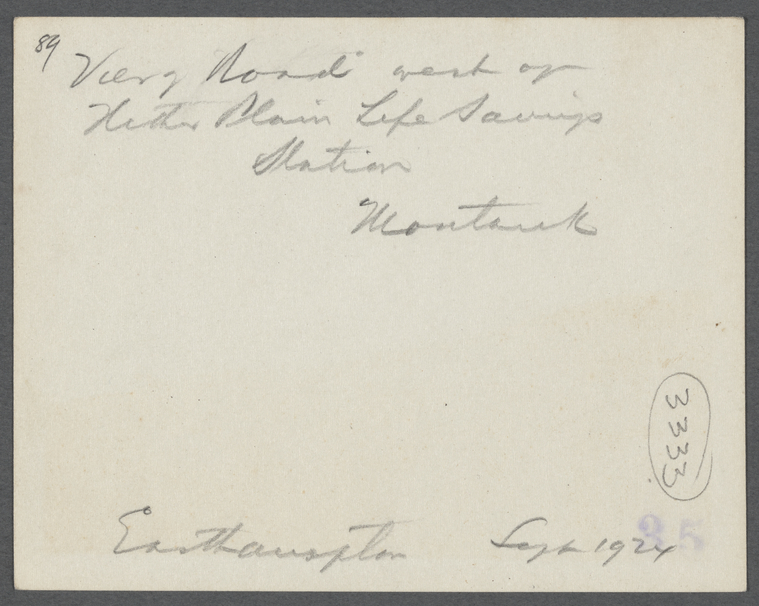 89
View of Road west of
Hither Plain Life Savings
Station
Montauk
3333
Easthampton Sept 1924
35